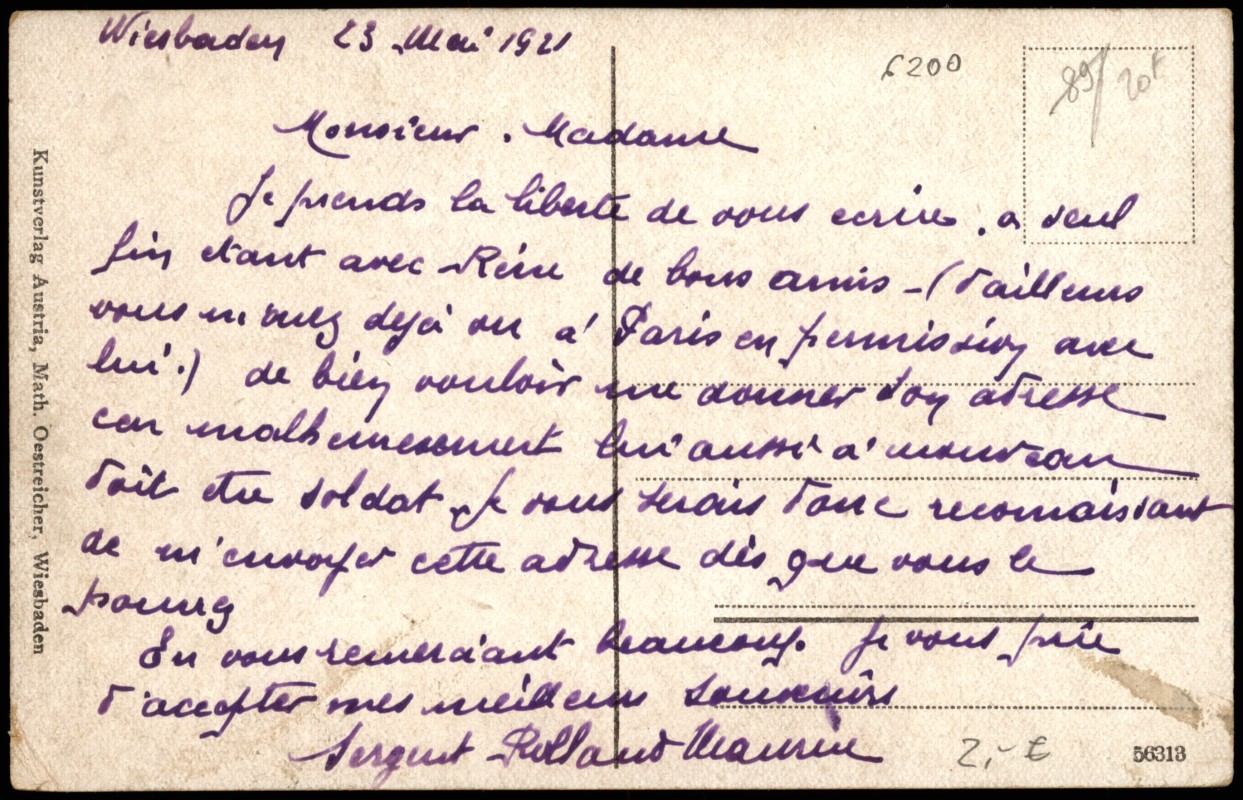 Wiesbaden 23 Mai 1921
6200
89/ 20F
Monsieur. Madame
Je prends la liberté de vous ecrire, a seul
fin etant avec Réne de bons amis - (d'ailleurs
vous m'avez dejà vu a' Paris en permission avec
lui.) de bien vouloir me donner son adresse
car malheureusement lui aussi a' nouveau
doit etre soldat. Je vous serais donc reconnaissant
de m'envoyer cette adresse dès que vous le
pourez
En vous remerciant beaucoup. Je vous prie
d'accepter mes meilleurs souvenirs
Sergent Rolland Maurice
2,- €
56313
Kunstverlag Austria, Math. Oestreicher, Wiesbaden